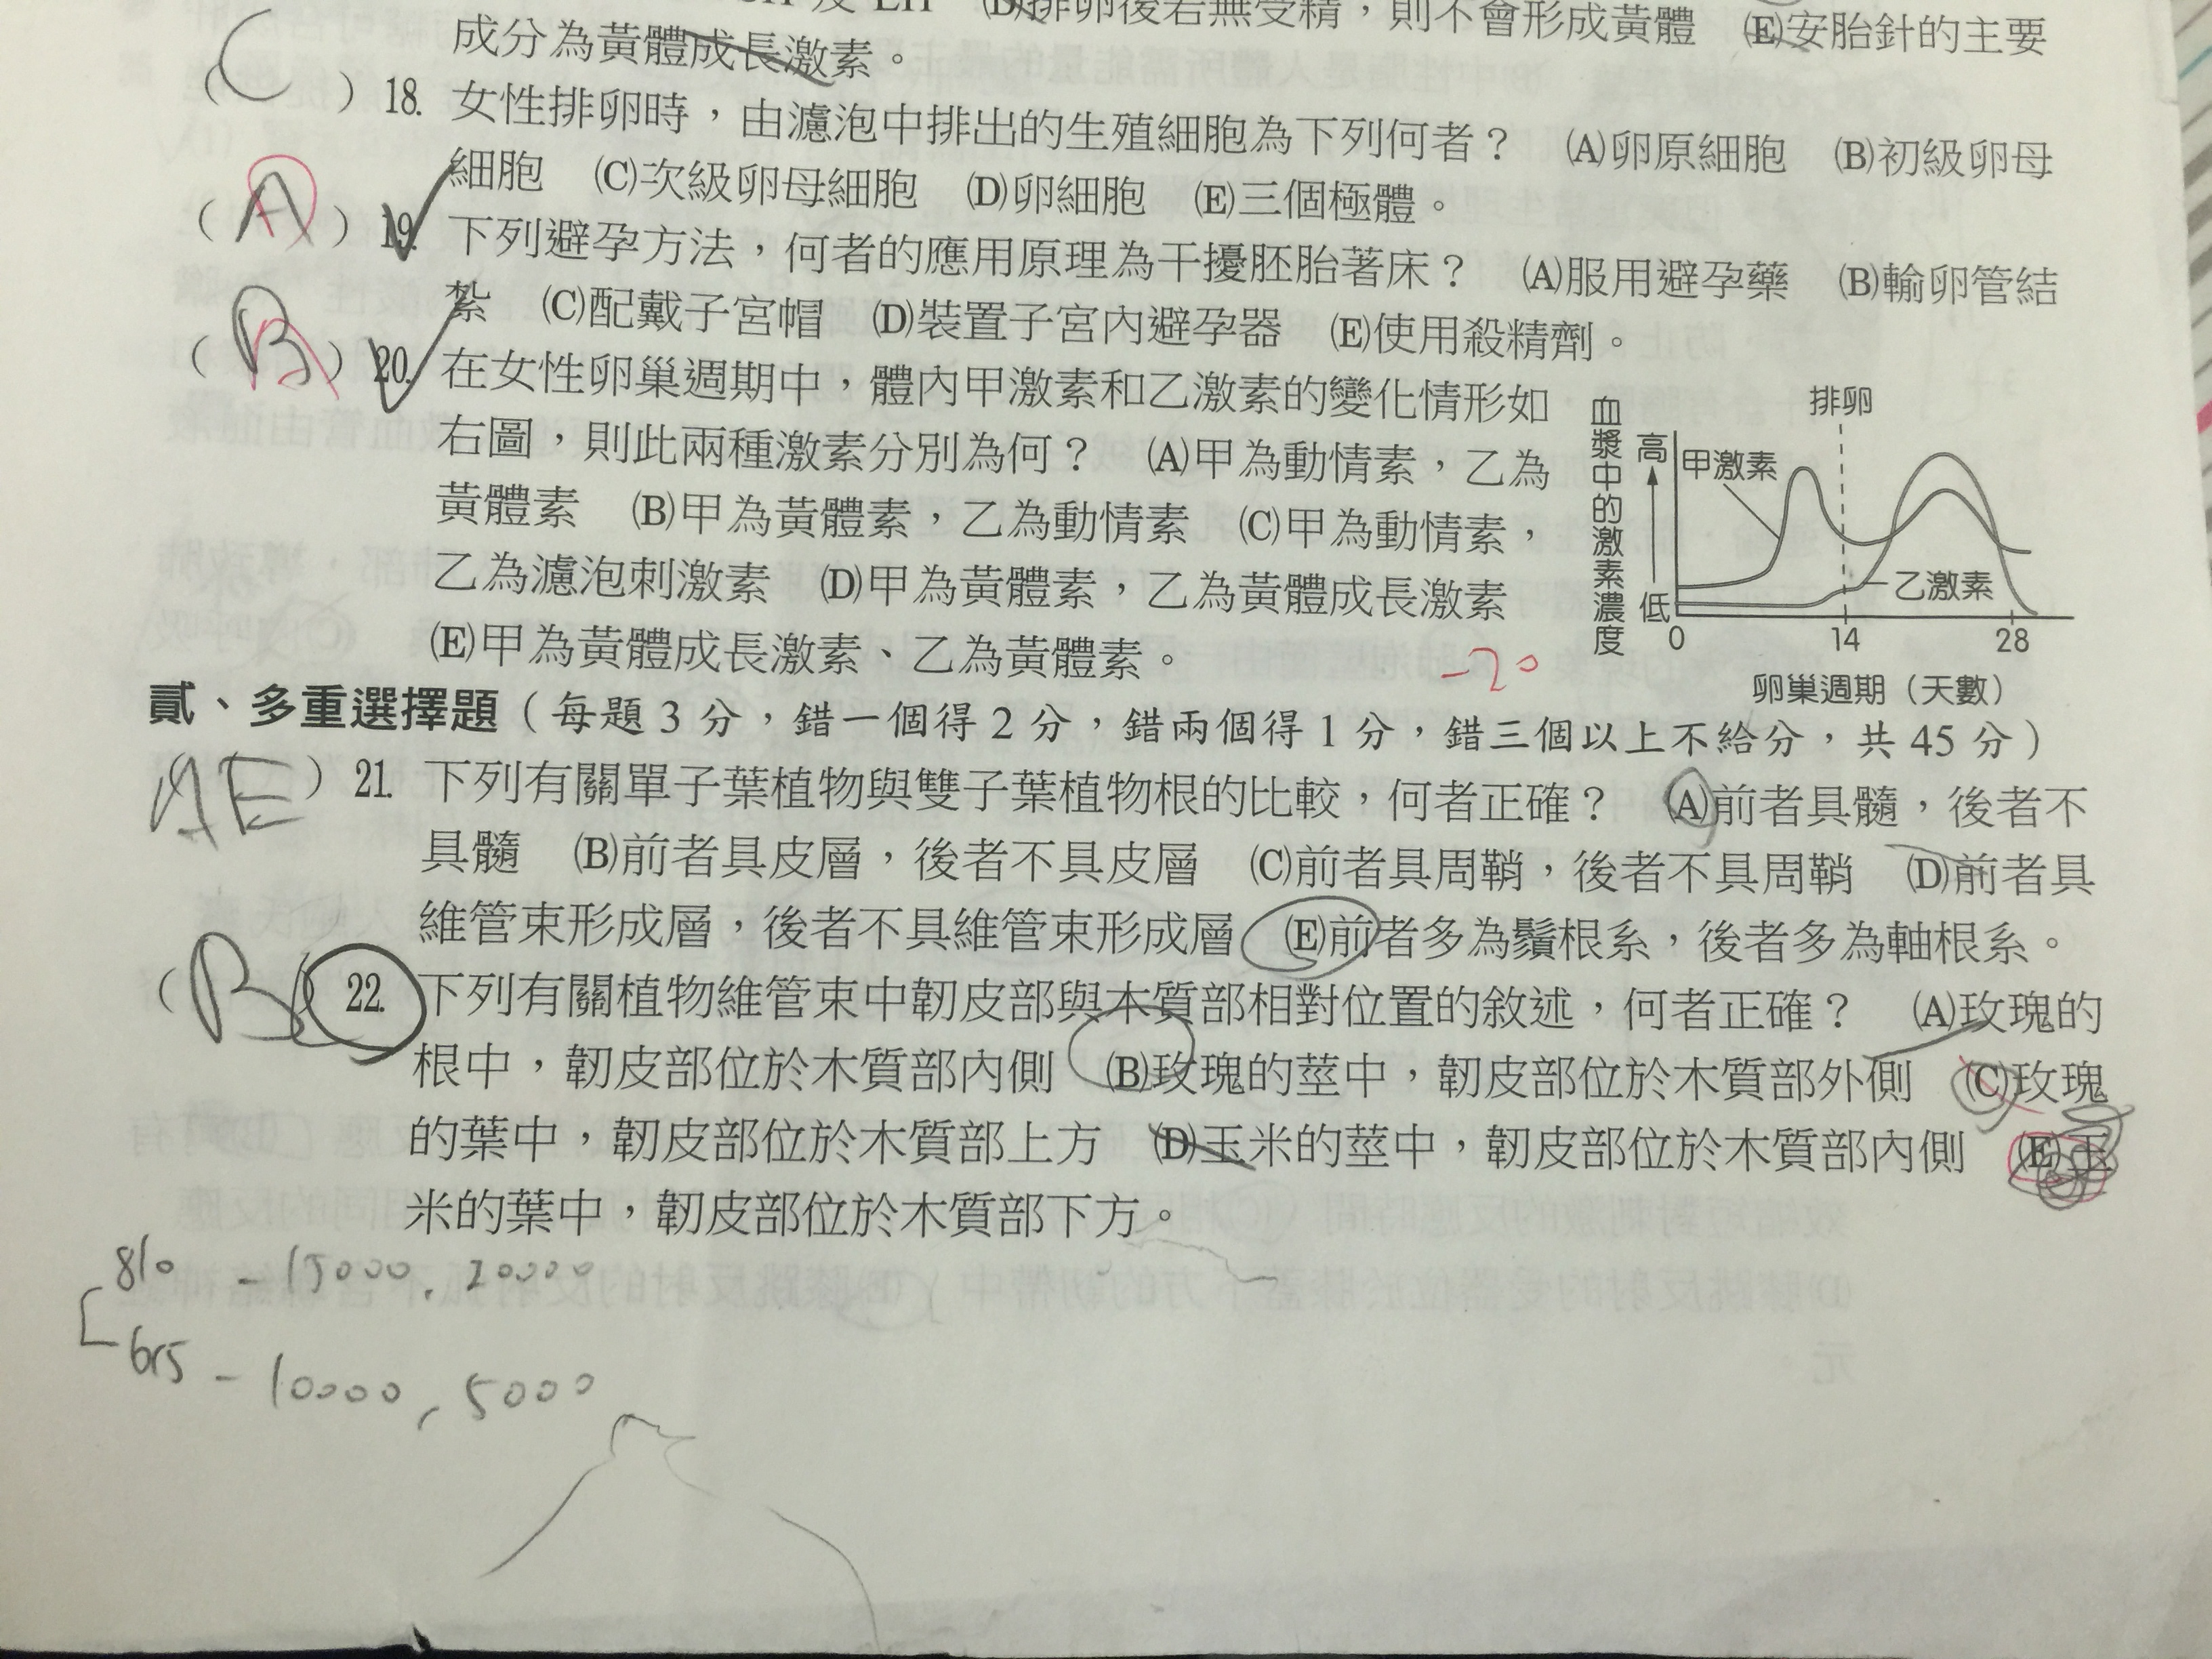 排卵後若無受精，則不會形成黃體 (E)安胎針的主要
成分為黃體成長激素。
( C ) 18. 女性排卵時，由濾泡中排出的生殖細胞為下列何者？ (A)卵原細胞 (B)初級卵母
細胞 (C)次級卵母細胞 (D)卵細胞 (E)三個極體。
( A ) 19. 下列避孕方法，何者的應用原理為干擾胚胎著床？ (A)服用避孕藥 (B)輸卵管結
紮 (C)配戴子宮帽 (D)裝置子宮內避孕器 (E)使用殺精劑。
( B ) 20. 在女性卵巢週期中，體內甲激素和乙激素的變化情形如
右圖，則此兩種激素分別為何？ (A)甲為動情素，乙為
黃體素 (B)甲為黃體素，乙為動情素 (C)甲為動情素，
乙為濾泡刺激素 (D)甲為黃體素，乙為黃體成長激素
(E)甲為黃體成長激素、乙為黃體素。
-20
血漿中的激素濃度
高
低
排卵
甲激素
乙激素
0 14 28
卵巢週期（天數）
貳、多重選擇題（每題3分，錯一個得2分，錯兩個得1分，錯三個以上不給分，共45分）
AE ) 21. 下列有關單子葉植物與雙子葉植物根的比較，何者正確？ (A)前者具髓，後者不
具髓 (B)前者具皮層，後者不具皮層 (C)前者具周鞘，後者不具周鞘 (D)前者具
維管束形成層，後者不具維管束形成層 (E)前者多為鬚根系，後者多為軸根系。
( B ) 22. 下列有關植物維管束中韌皮部與木質部相對位置的敘述，何者正確？ (A)玫瑰的
根中，韌皮部位於木質部內側 (B)玫瑰的莖中，韌皮部位於木質部外側 (C)玫瑰
的葉中，韌皮部位於木質部上方 (D)玉米的莖中，韌皮部位於木質部內側 (E)玉
米的葉中，韌皮部位於木質部下方。
810 - 15000, 20000
615 - 10000, 5000